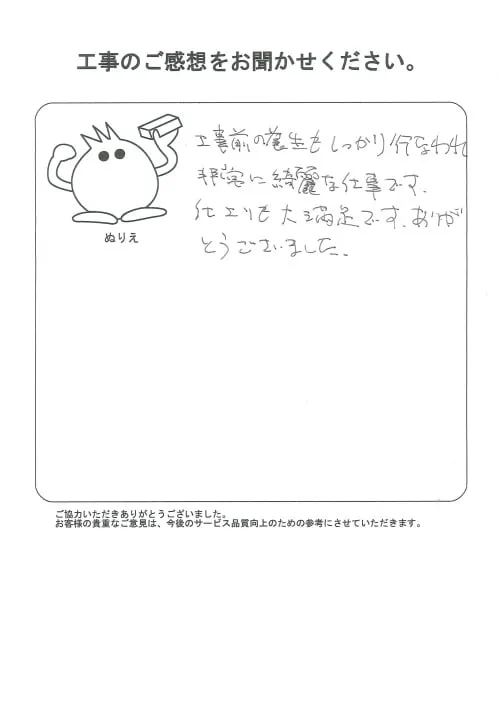 工事のご感想をお聞かせください。
工事前の養生もしっかり行なわれ
非常に綺麗な仕事です。
仕上りも大満足です。ありが
とうございました。
ぬりえ
ご協力いただきありがとうございました。
お客様の貴重なご意見は、今後のサービス品質向上のための参考にさせていただきます。